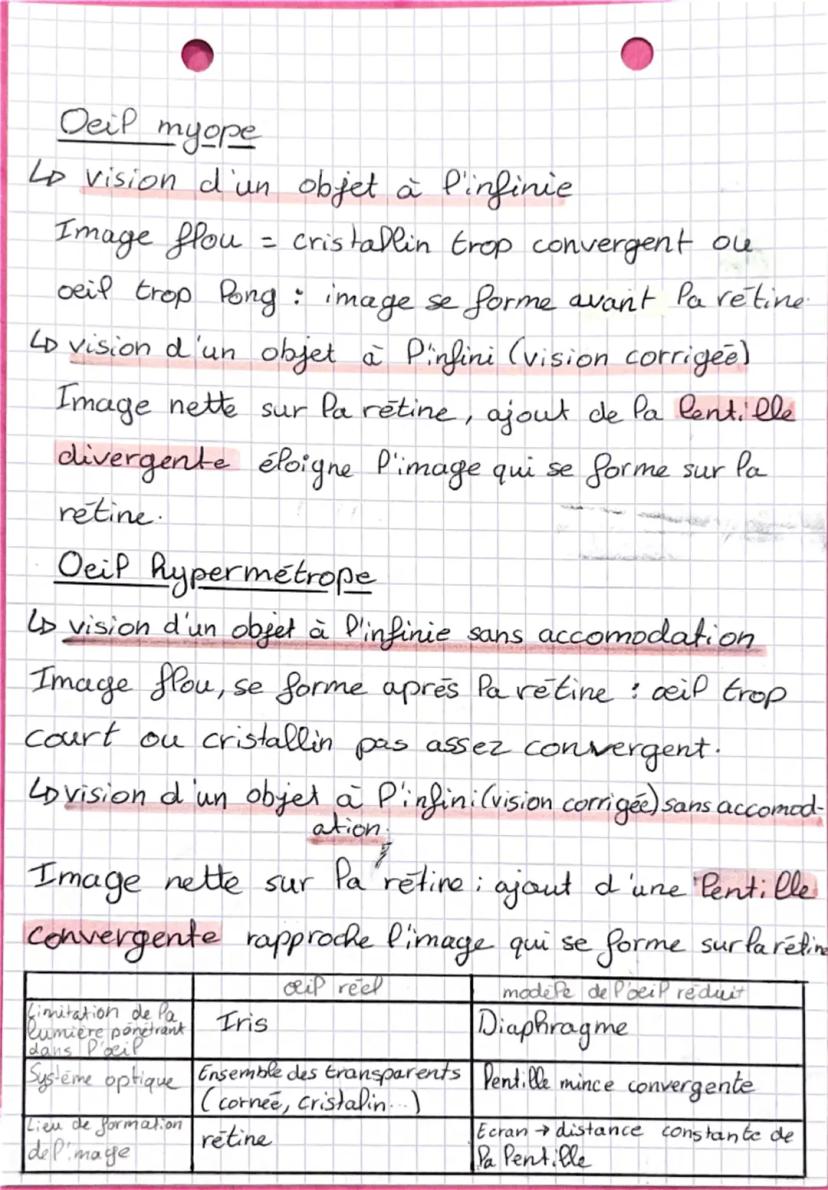 Oeil myope
↳ vision d'un objet à l'infinie
Image flou = cristallin trop convergent ou
oeil trop long : image se forme avant la rétine.
↳ vision d'un objet à l'infini (vision corrigée)
Image nette sur la rétine, ajout de la lentille
divergente éloigne l'image qui se forme sur la
rétine.
Oeil hypermétrope
↳ vision d'un objet à l'infinie sans accomodation
Image flou, se forme après la rétine : œil trop
court ou cristallin pas assez convergent.
↳ vision d'un objet à l'infini (vision corrigée) sans accomod-
ation.
Image nette sur la rétine ; ajout d'une lentille
convergente rapproche l'image qui se forme sur la rétine
œil réel modèle de l'oeil réduit
Limitation de la
lumière pénétrant
dans l'œil
Iris Diaphragme
Système optique
Ensemble des transparents
(cornée, cristalin...)
lentille mince convergente
Lieu de formation
de l'image
rétine
Ecran → distance constante de
la lentille